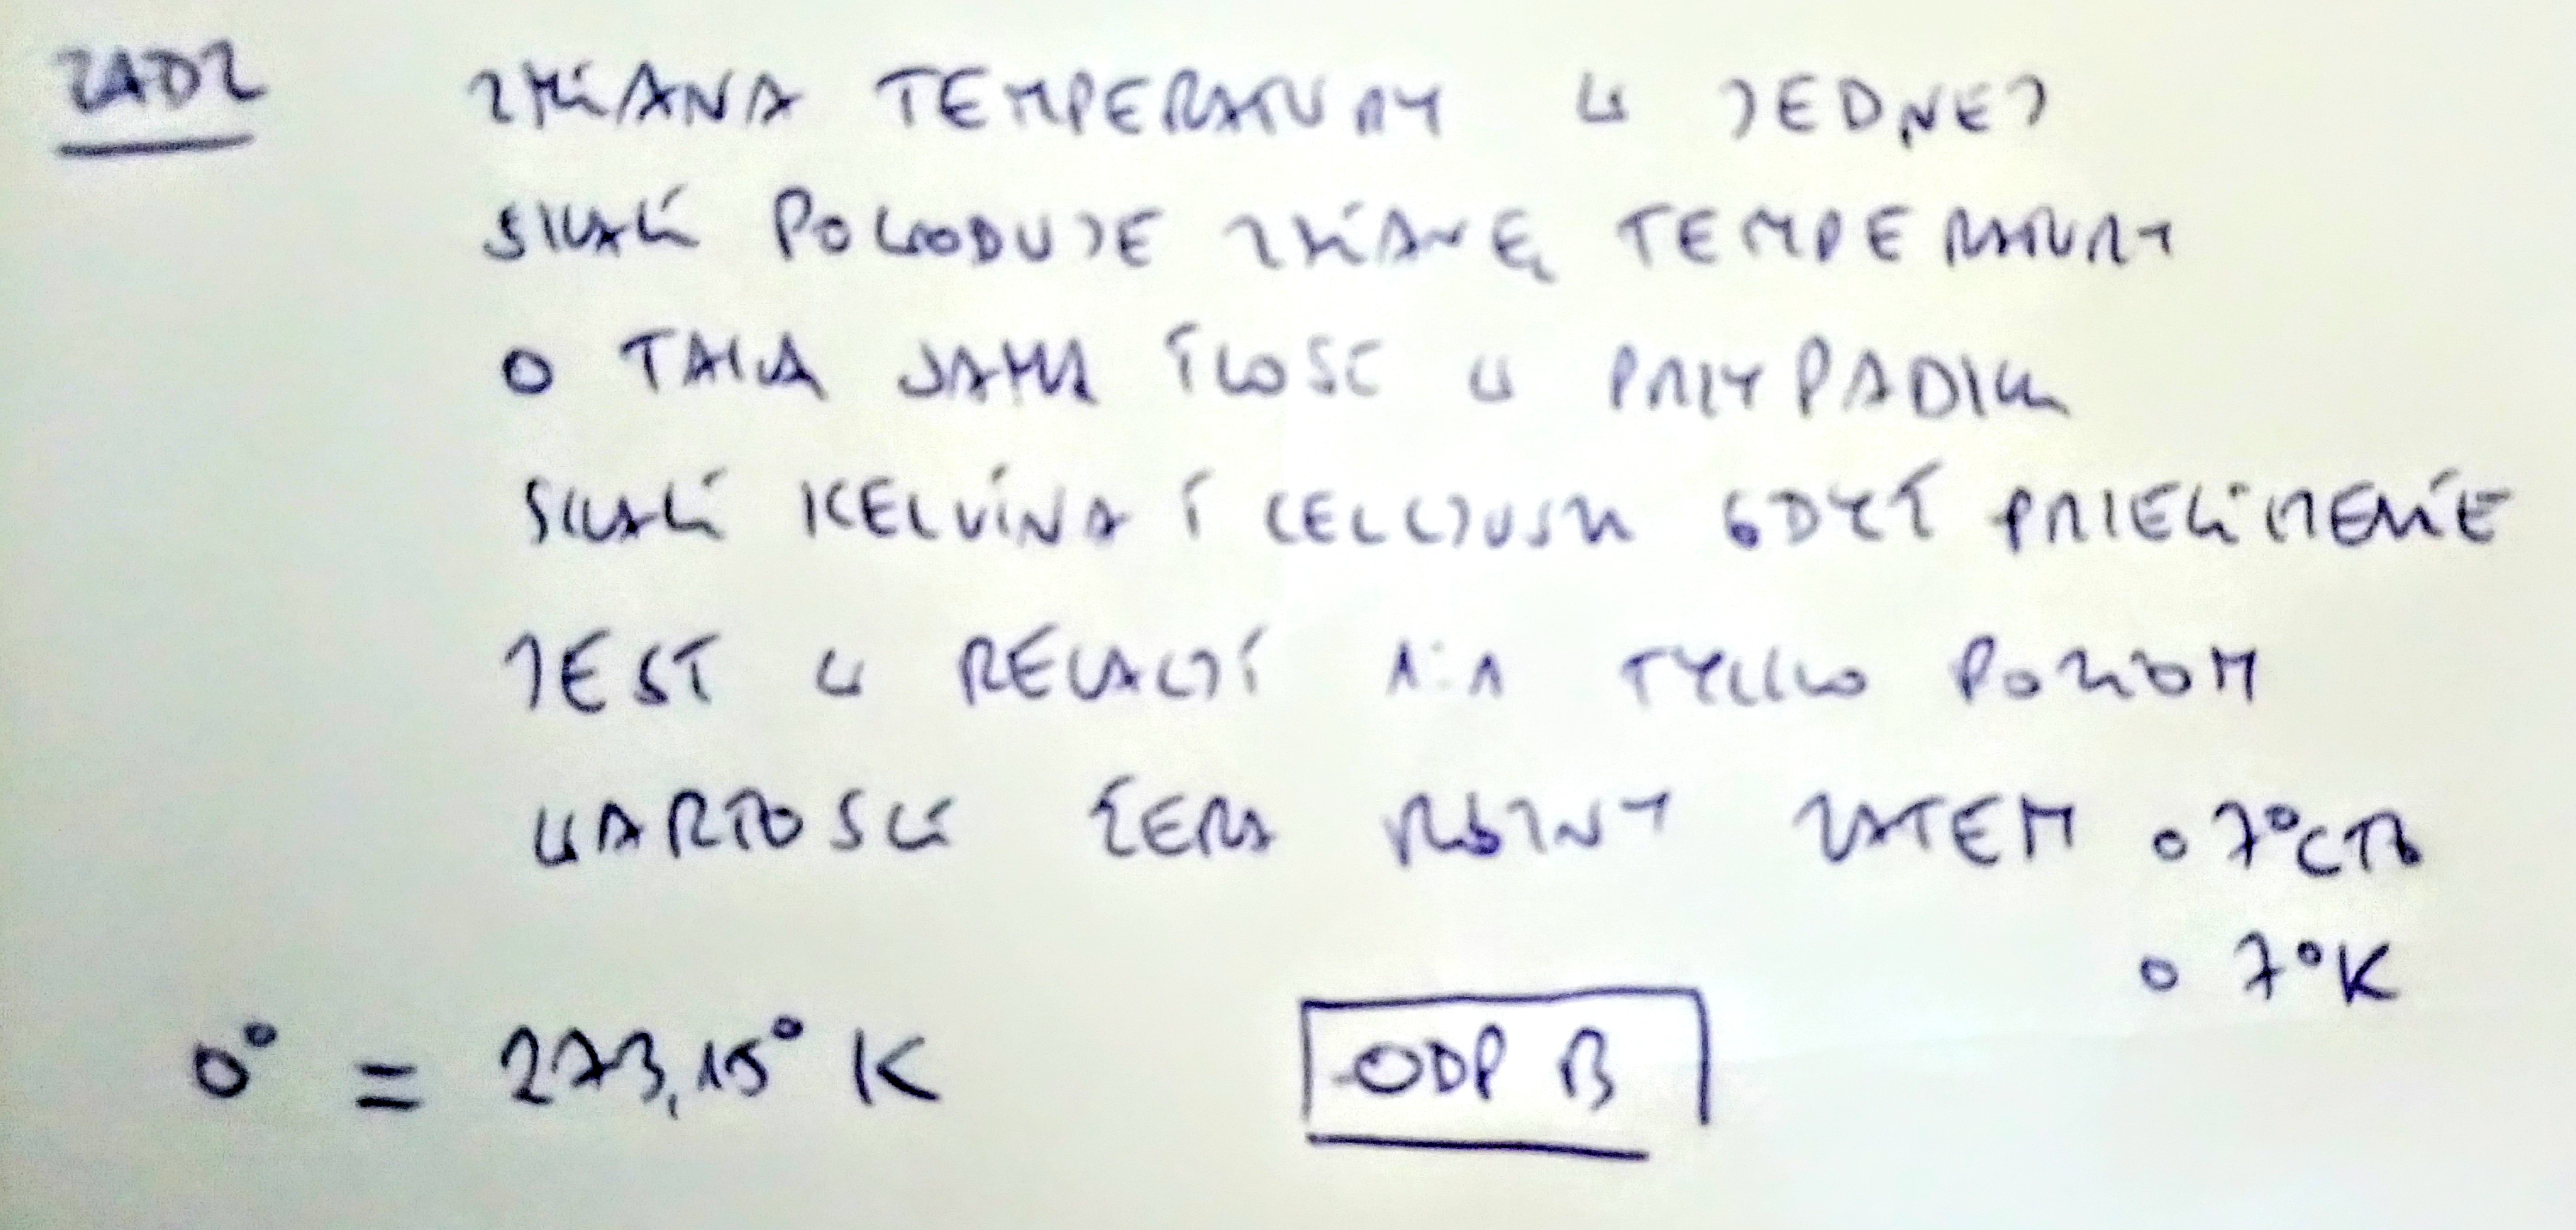 ZAD2 ZMIANA TEMPERATURY W JEDNEJ
SKALI POWODUJE ZMIANĘ TEMPERATURY
O TAKĄ SAMĄ ILOŚĆ W PRZYPADKU
SKALI KELVINA I CELCJUSZA GDYŻ PRZELICZENIE
JEST W RELACJI 1:1 TYLKO POZIOM
WARTOŚCI ZERA RÓŻNY ZATEM O 7°C TO
O 7°K
0° = 273,15° K ODP B